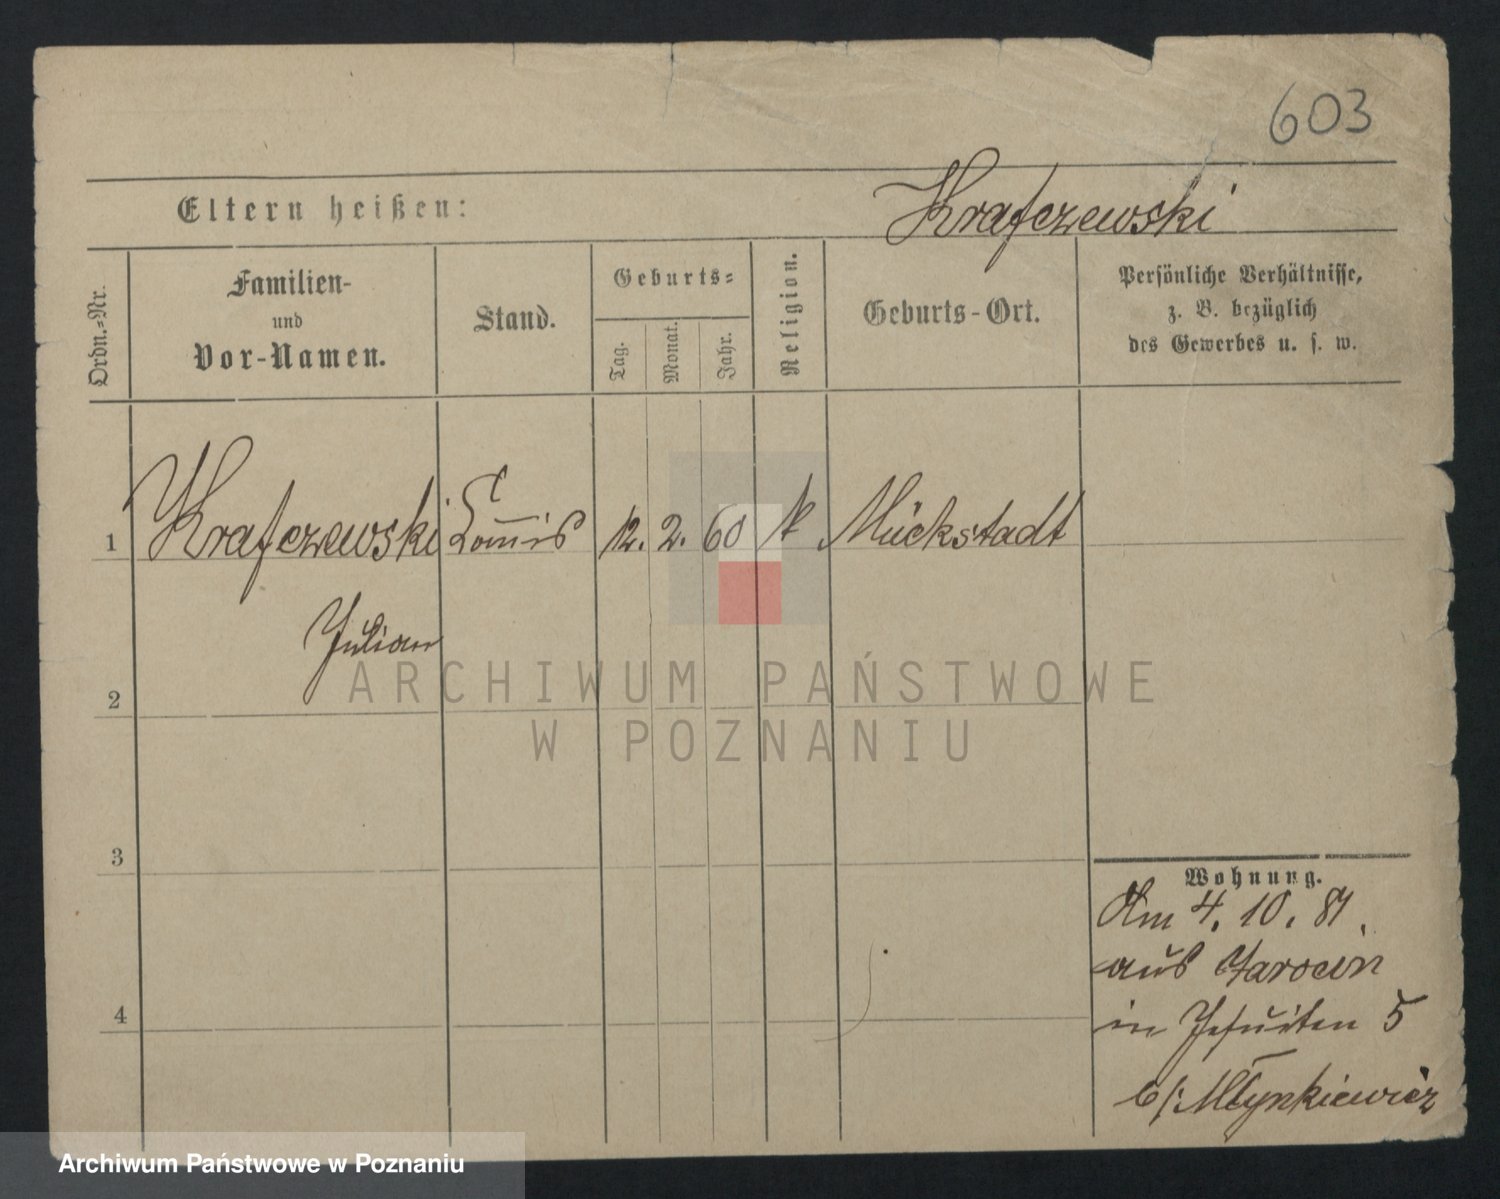 603
Krafczewski
Eltern heißen:
Ordn.=Nr.
Familien-
und
Vor-Namen.
Stand.
Geburts=
Tag.
Monat.
Jahr.
Religion.
Geburts-Ort.
Persönliche Verhältnisse,
z. B. bezüglich
des Gewerbes u. s. w.
1
Krafczewski
Julian
Commis
12.
2.
60
k
Mückstadt
2
3
4
Wohnung.
Am 4. 10. 81.
aus Jarocin
in Jesuiten 5
b/: Młynkiewicz
ARCHIWUM PAŃSTWOWE
W POZNANIU
Archiwum Państwowe w Poznaniu